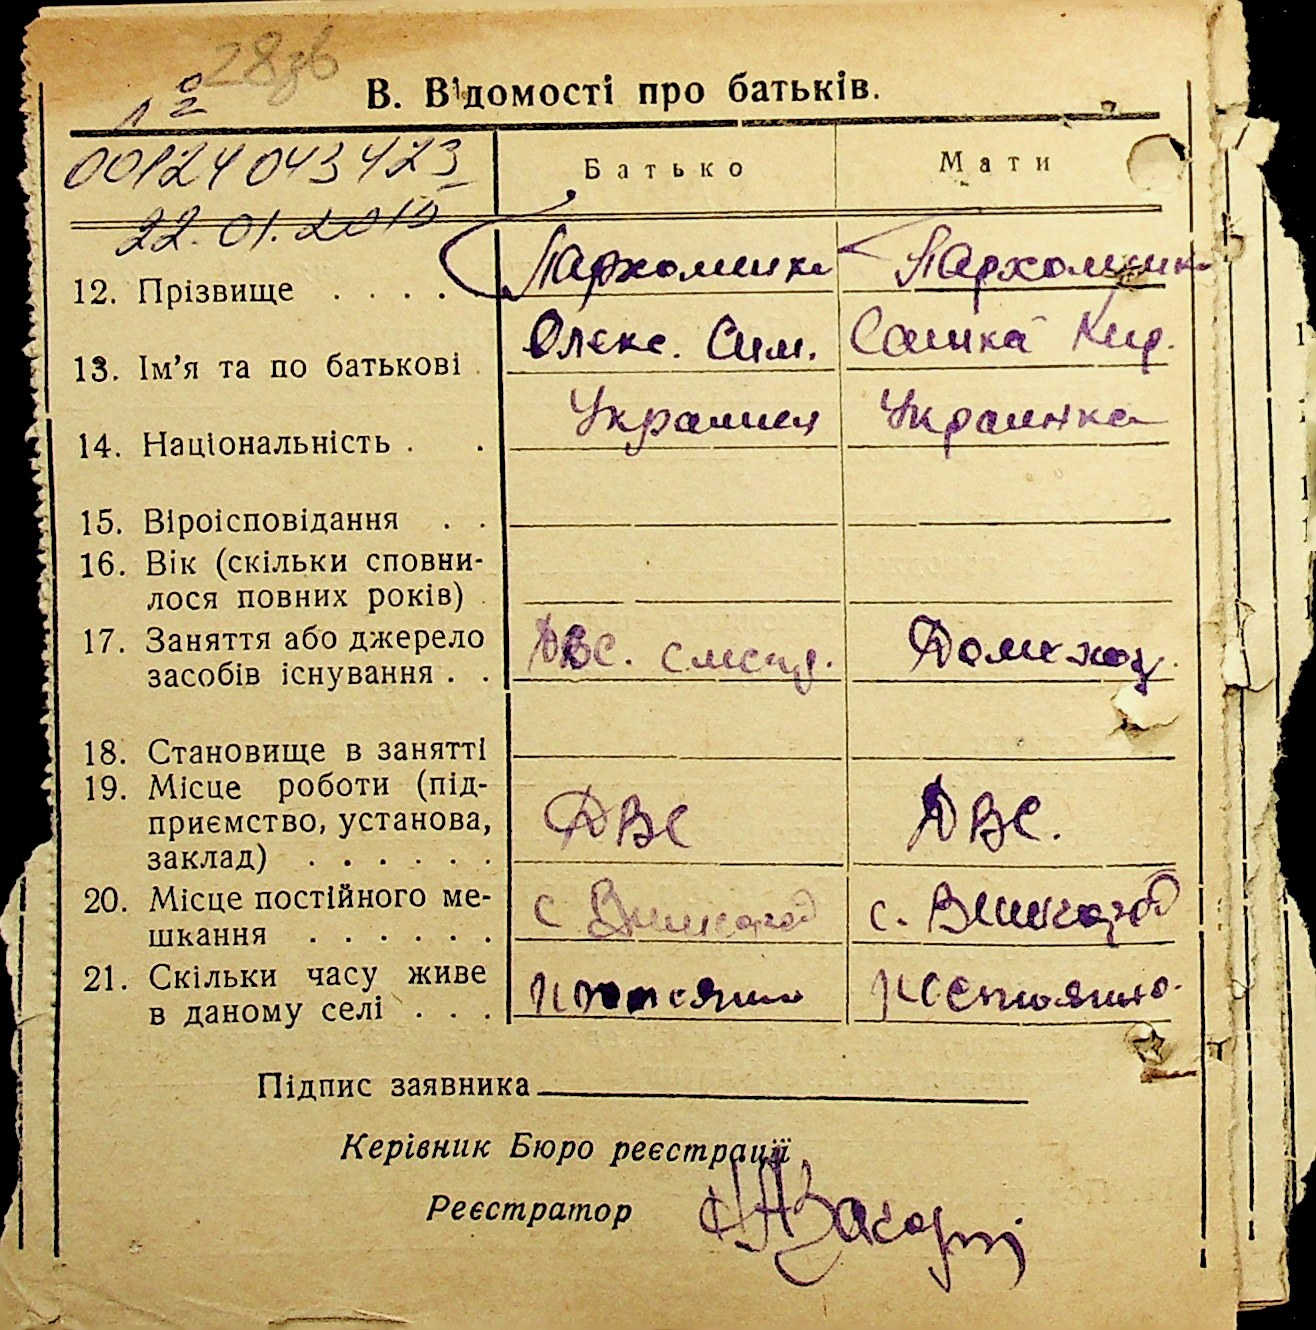 28зв
В. Відомості про батьків.
00124043423
22.01.2010
Батько Мати
12. Прізвище . . . . Пархоменко Пархоменко
13. Ім'я та по батькові . Олекс. Сим. Сашка Кир.
14. Національність . . Украинец Украинка
15. Віроісповідання . .
16. Вік (скільки сповни-
лося повних років) .
17. Заняття або джерело
засобів існування . . Домохоз.
18. Становище в занятті
19. Місце роботи (під-
приємство, установа,
заклад) . . . . . . ДВС ДВС.
20. Місце постійного ме-
шкання . . . . . . с. с.
21. Скільки часу живе
в даному селі . . . постоянно постоянно.
Підпис заявника
Керівник Бюро реєстрації
Реєстратор